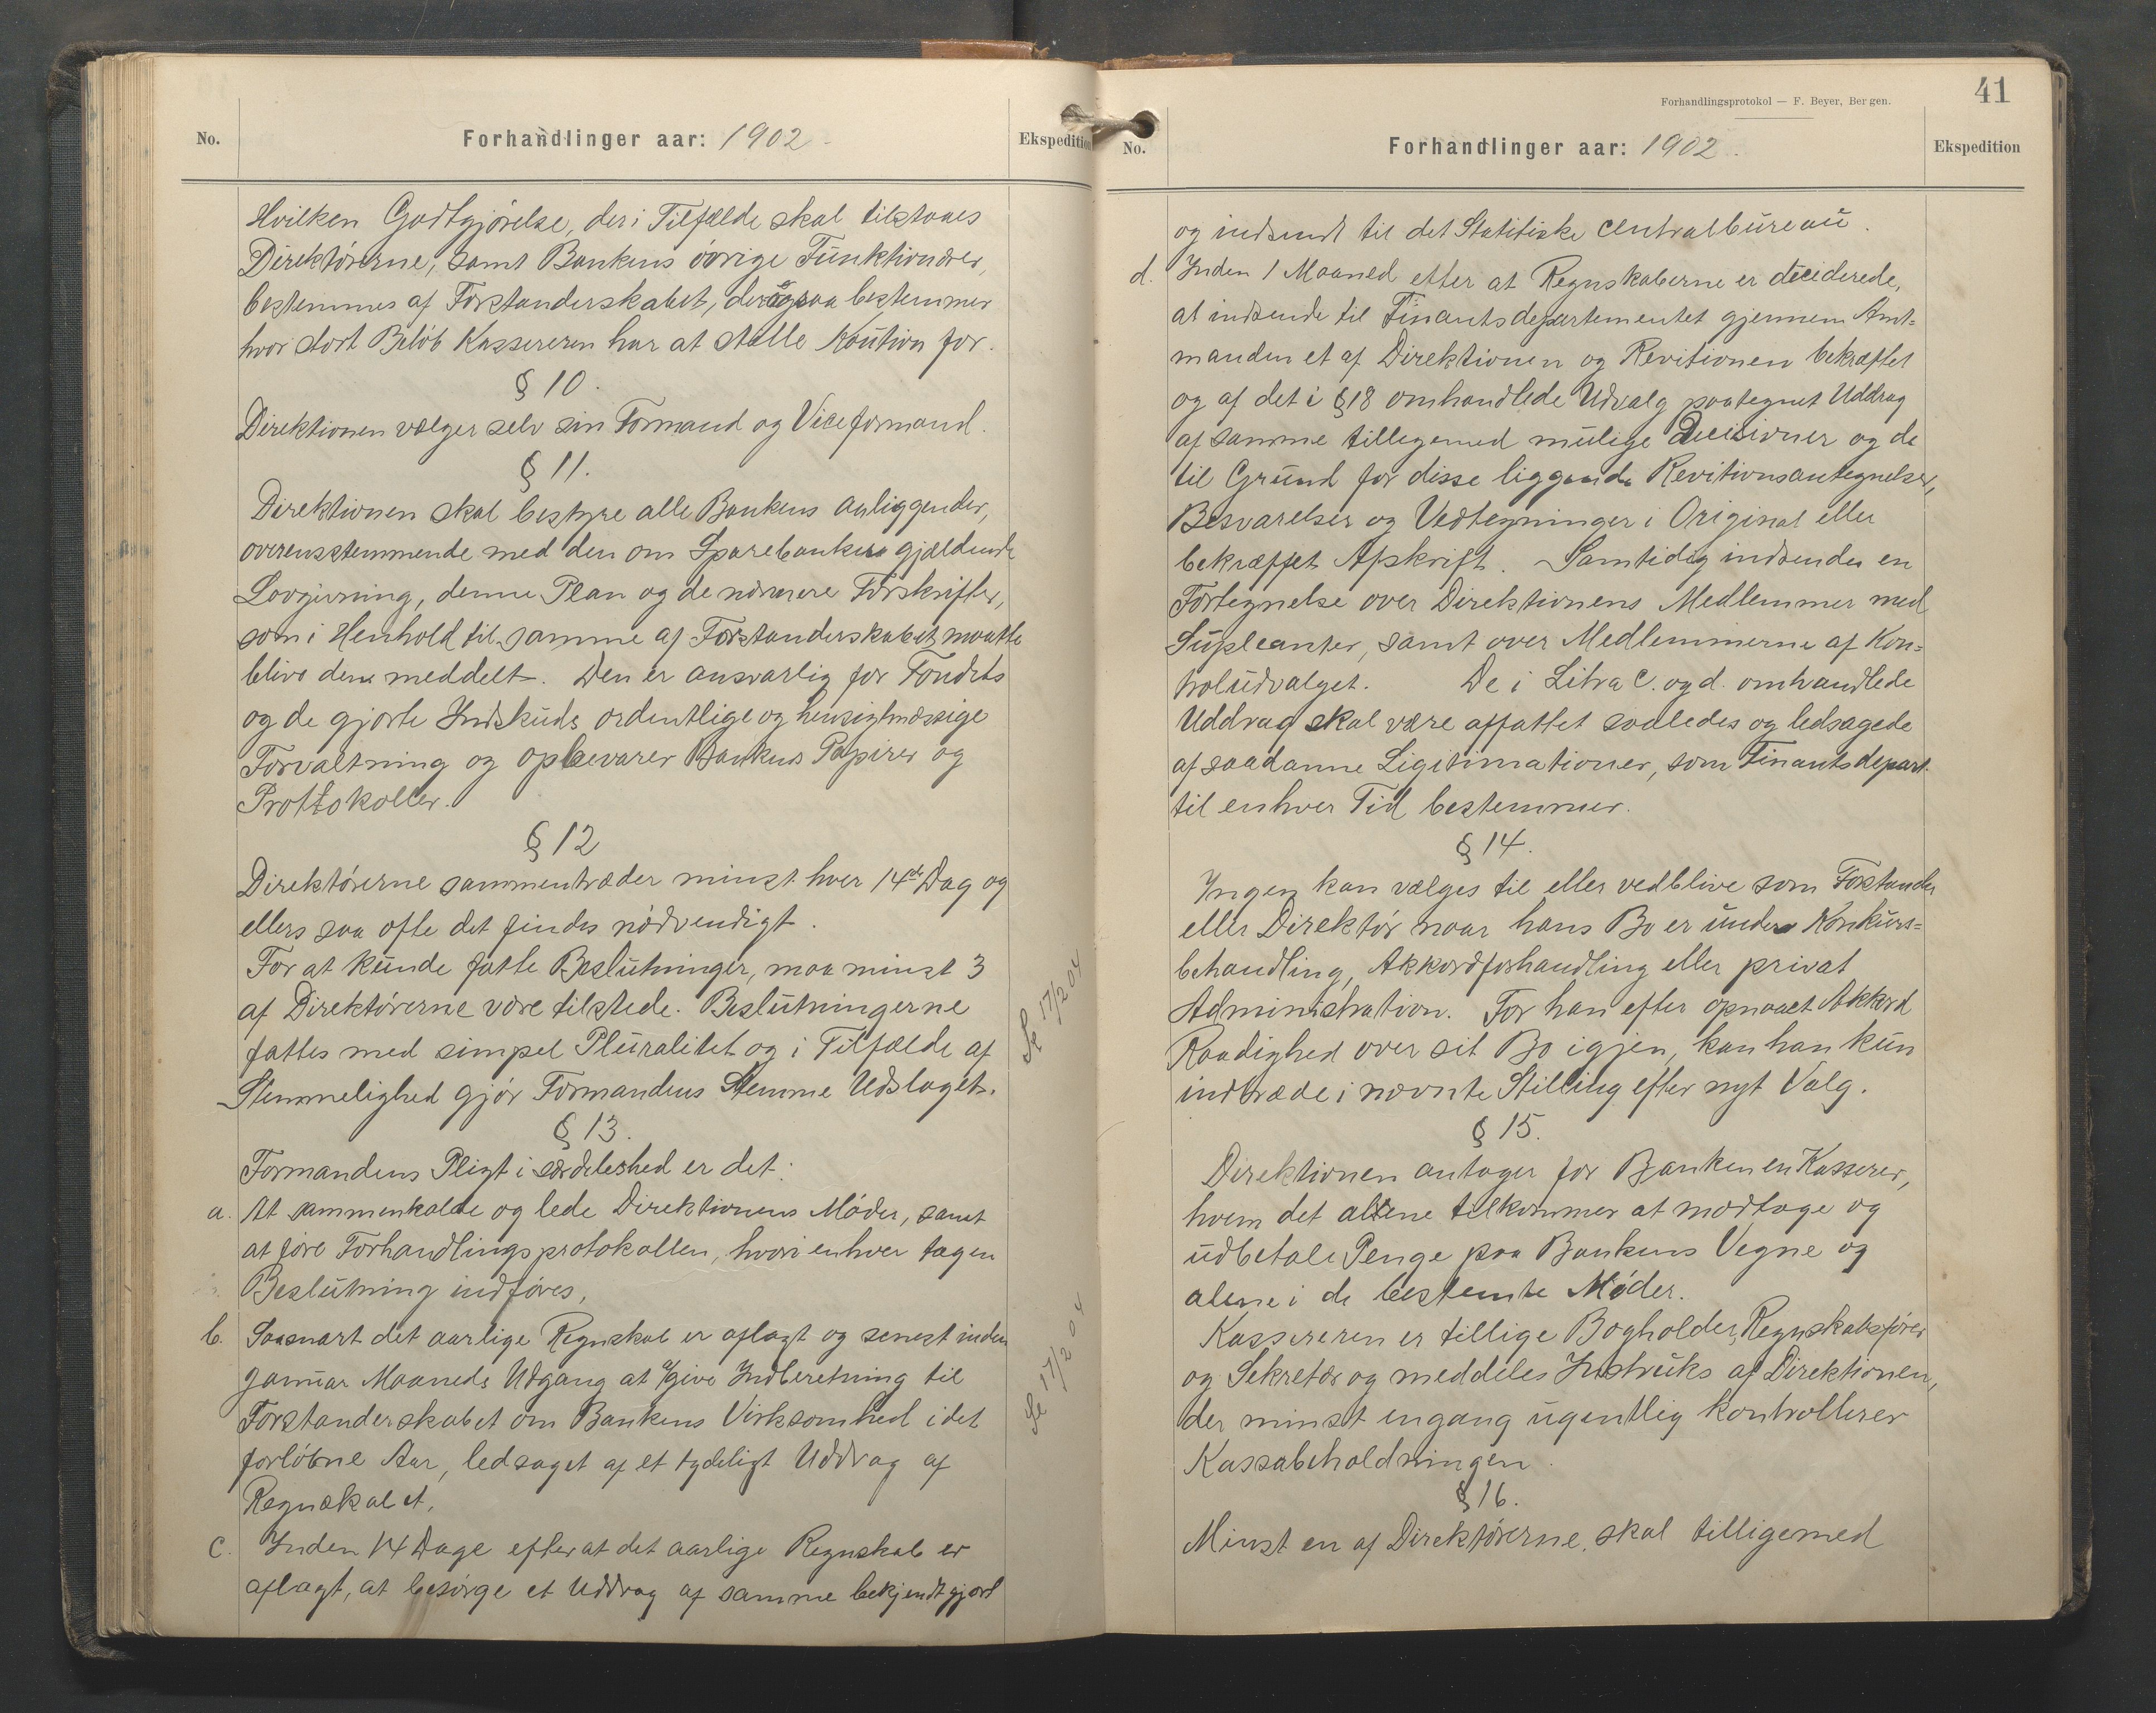 No.
Forhandlinger aar: 1902
Ekspedition
Hvilken Godtgjörelse, der i Tilfælde skal tilstaaes
Direktörerne, samt Bankens övrige Funktionærer,
bestemmes af Forstanderskabet, der ogsaa bestemmer
hvor stort Belöb Kassereren har at stelle Kaution for.
§ 10.
Direktionen vælger selv sin Formand og Viceformand.
§ 11.
Direktionen skal bestyre alle Bankens anliggender,
overensstemmende med den om Sparebanker gjældende
Lovgivning, denne Plan og de nærmere Forskrifter,
som i Henhold til samme af Forstanderskabet maatte
blive den meddelt. Den er ansvarlig for Fondets
og de gjorte Indskuds ordentlige og hensigtmæssige
Forvaltning og opbevarer Bankens Papirer og
Prottokoller.
§ 12
Direktörerne sammentræder minst hver 14de Dag og
ellers saa ofte det findes nödvendigt.
For at kunde fatte Beslutninger, maa minst 3
af Direktörerne være tilstede. Beslutningerne
fattes med simpel Pluralitet og i Tilfælde af
Stemmelighed gjör Formandens Stemme Udslaget.
Se 17/2 04
§ 13.
Formandens Pligt i særdeleshed er det:
a. At sammenkalde og lede Direktionens Möder, samt
at före Forhandlingsprotokollen, hvori enhver tagen
Beslutning indföres,
b. Saasnart det aarlige Regnskab er aflagt og senest inden
Januar Maaneds Udgang at give Indberetning til
Forstanderskabet om Bankens Virksomhed i det
forlöbne Aar, ledsaget af et tydeligt Uddrag af
Regnskabet,
Se 17/2 04
c. Inden 14 Dage efter at det aarlige Regnskab er
aflagt, at besörge et Uddrag af samme bekjendtgjort
Forhandlingsprotokol — F. Beyer, Bergen.
41
No.
Forhandlinger aar: 1902.
Ekspedition
og indsendt til det Statitiske centralbureau.
d. Inden 1 Maaned efter at Regnskaberne er deciderede,
at indsende til Finantsdepartementet gjennem Amt=
manden et af Direktionen og Revitionen bekræftet
og af det i § 18 omhandlede Udvalg paategnet Uddrag
af samme tillegemed mulige Decisioner og de
til Grund for disse liggende Revitionsantegnelser,
Besvarelser og Vedtegninger i Original eller
bekræftet Afskrift. Samtidig indsendes en
Fortegnelse over Direktionens Medlemmer med
Supleanter, samt over Medlemmerne af Kon=
troludvalget. De i Litra c. og d. omhandlede
Uddrag skal være affattet saaledes og ledsagede
af saadanne Ligitimationer, som Finantsdepart.
til enhver Tid bestemmer.
§ 14.
Ingen kan vælges til eller vedblive som Forstander
eller Direktör naar hans Bo er under Konkurs=
behandling, Akkordforhandling eller privat
Administration. For han efter opnaaet Akkord
Raadighed over sit Bo igjen, kan han kun
indtræde i nævnte Stilling efter nyt Valg.
§ 15.
Direktionen antager for Banken en Kasserer,
hvem det alene tilkommer at modtage og
udbetale Penge paa Bankens Vegne og
alene i de bestemte Möder.
Kassereren er tillige Bogholder, Regnskabsförer
og Sekretær og meddeles Instruks af Direktionen,
der minst engang ugentlig kontrollerer
Kassabeholdningen.
§ 16.
Minst en af Direktörerne skal tilligemed